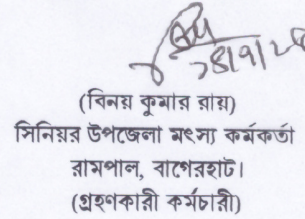 (বিনয় কুমার রায়)
সিনিয়র উপজেলা মৎস্য কর্মকর্তা
রামপাল, বাগেরহাট।
(গ্রহণকারী কর্মচারী)